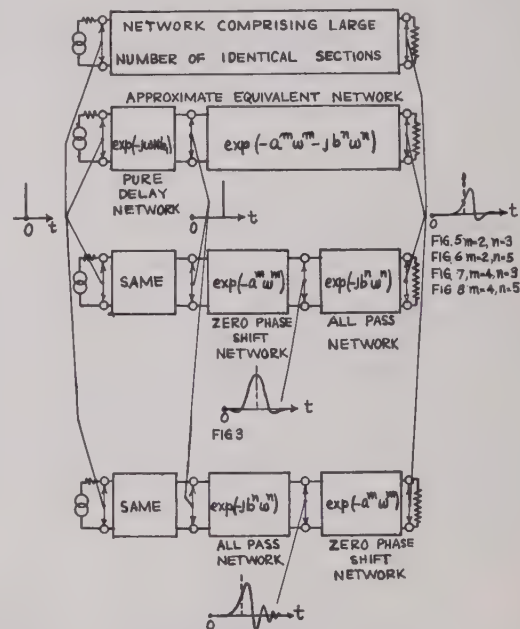 NETWORK COMPRISING LARGE
NUMBER OF IDENTICAL SECTIONS
APPROXIMATE EQUIVALENT NETWORK
exp(-a^m ω^m - jb^n ω^n)
PURE
DELAY
NETWORK
0 t
t
t
0
FIG. 5 m=2, n=3
FIG. 6 m=2, n=5
FIG. 7, m=4, n=3
FIG 8 m=4, n=5
SAME
exp(-a^m ω^m)
exp(-jb^n ω^n)
ZERO PHASE
SHIFT
NETWORK
ALL PASS
NETWORK
t
0
FIG 3
SAME
exp(-jb^n ω^n)
exp(-a^m ω^m)
ALL PASS
NETWORK
ZERO PHASE
SHIFT
NETWORK
t
0